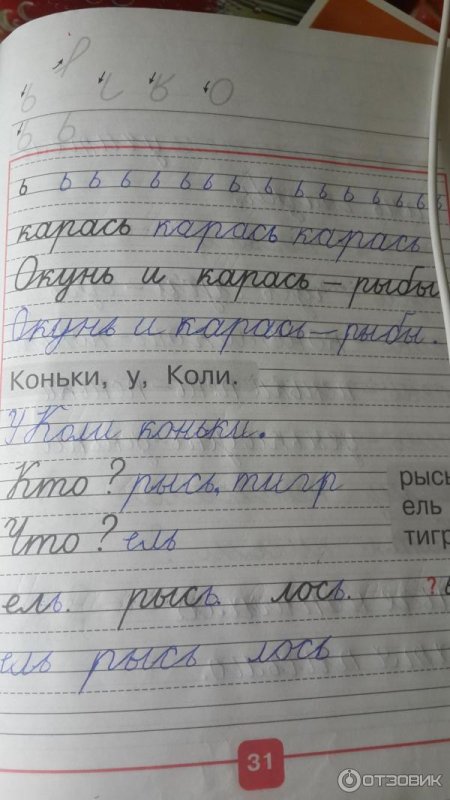 ь ь ь ь ь ь ь ь ь ь ь ь ь ь ь
карась карась карась
Окунь и карась – рыбы
Окунь и карась – рыбы.
Коньки, у, Коли.
У Коли коньки.
Кто? рысь, тигр рысь
ель
Что? ель тигр
ель. рысь. лось. ?
ель рысь лось
31
ОТЗОВИК